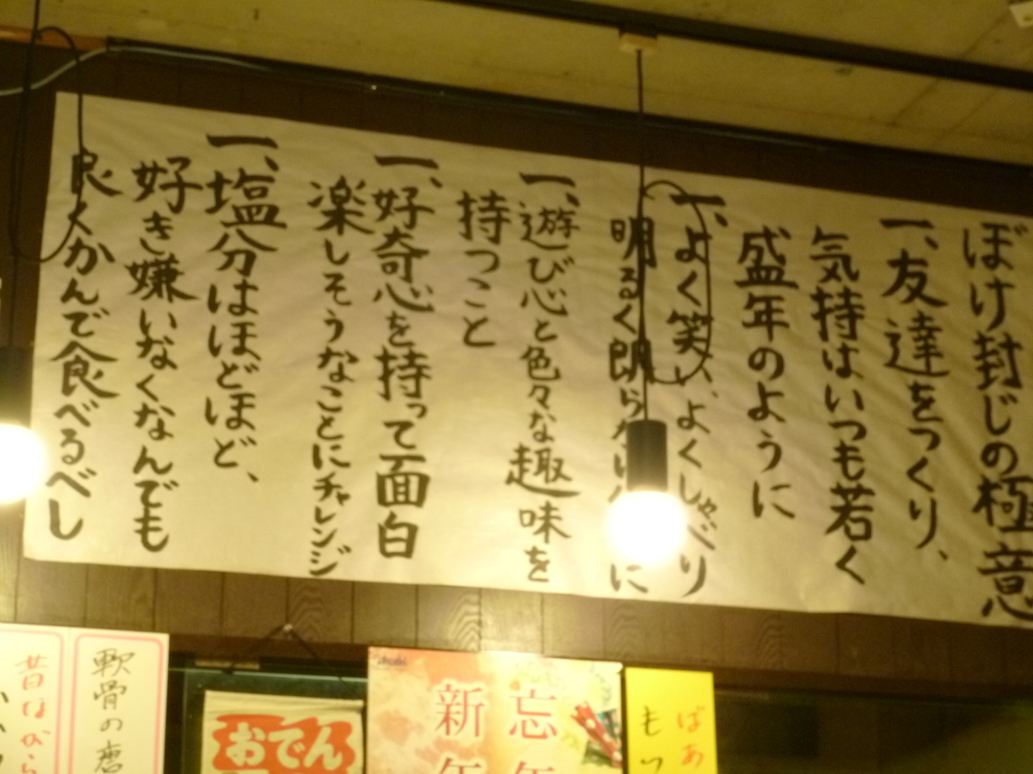 ぼけ封じの極意
一、友達をつくり、
気持はいつも若く
盛年のように
一、よく笑い、よくしゃべり
明るく朗らかに
一、遊び心と色々な趣味を
持つこと
一、好奇心を持って面白
楽しそうなことにチャレンジ
一、塩分はほどほど、
好き嫌いなくなんでも
良くかんで食べるべし
ばあ
もつ
忘年
新年
おでん
軟骨の唐
昔ながら